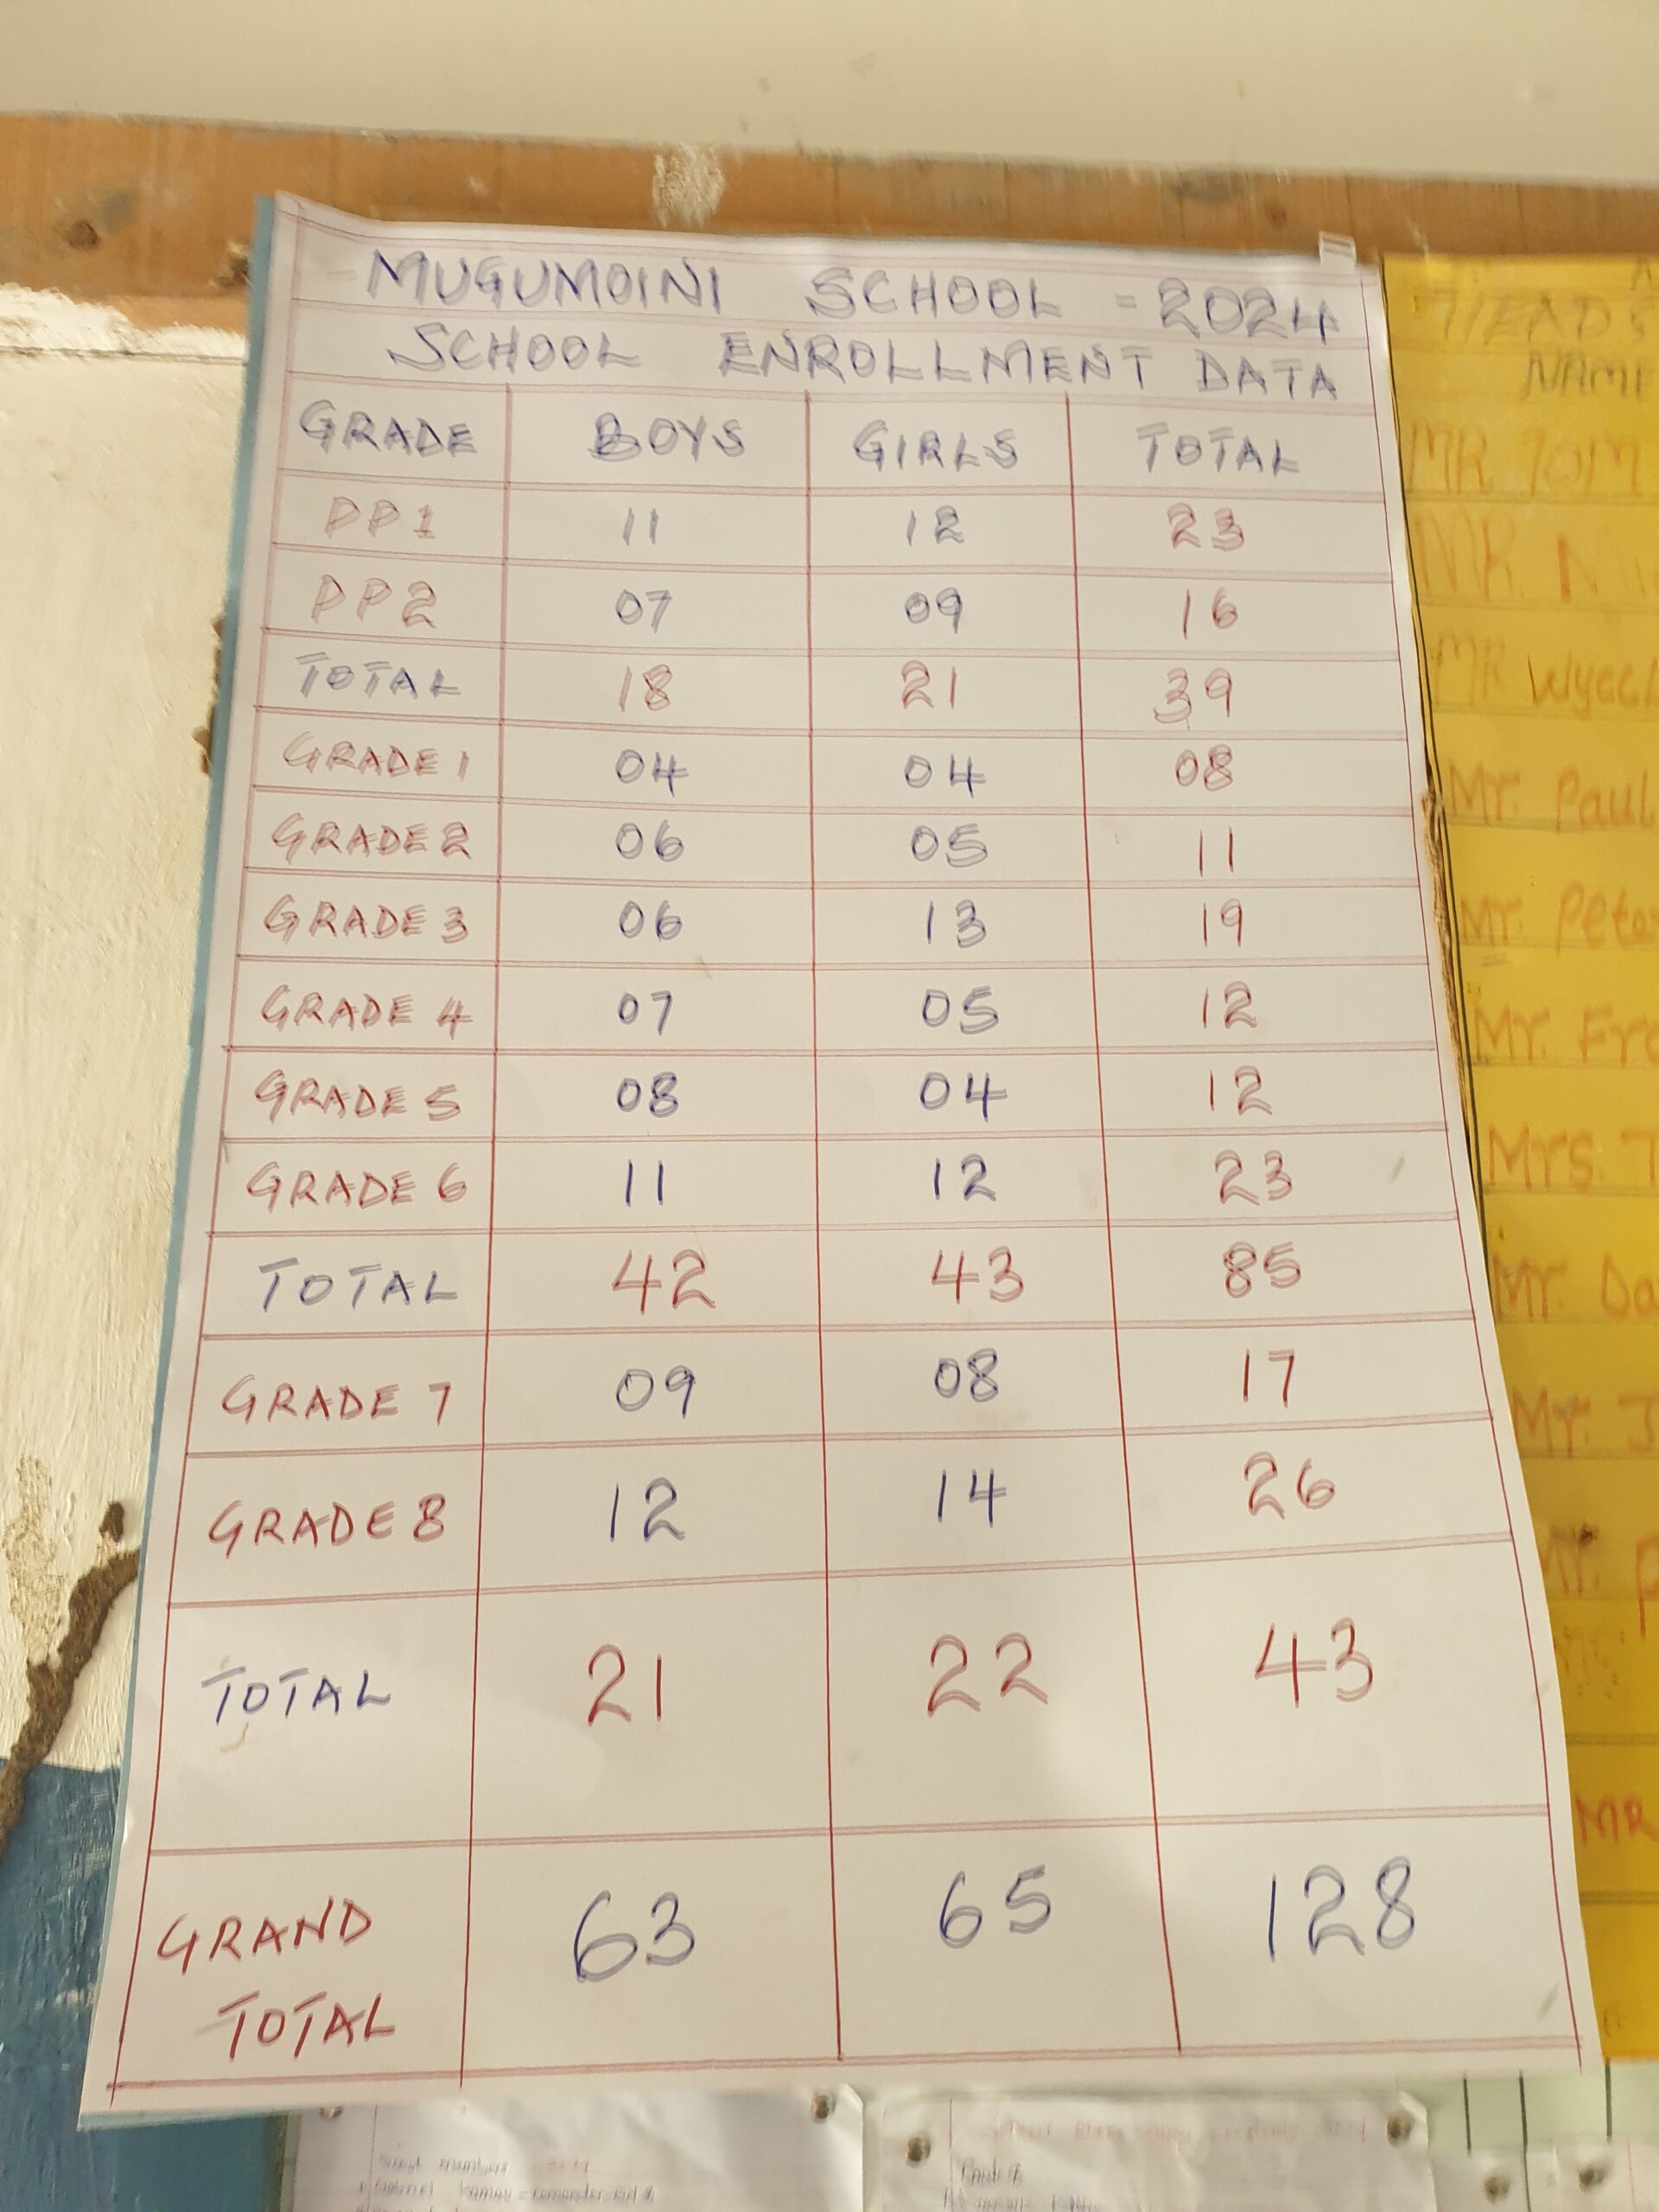 MUGUMOINI SCHOOL = 2024
SCHOOL ENROLLMENT DATA
GRADE BOYS GIRLS TOTAL
PP1 11 12 23
PP2 07 09 16
TOTAL 18 21 39
GRADE 1 04 04 08
GRADE 2 06 05 11
GRADE 3 06 13 19
GRADE 4 07 05 12
GRADE 5 08 04 12
GRADE 6 11 12 23
TOTAL 42 43 85
GRADE 7 09 08 17
GRADE 8 12 14 26
TOTAL 21 22 43
GRAND TOTAL 63 65 128
MR TOM
MR. N
MR
Mr. Paul
Mr. Peter
Mr.
Mrs. T
Mr. Da
Mr. J
MR